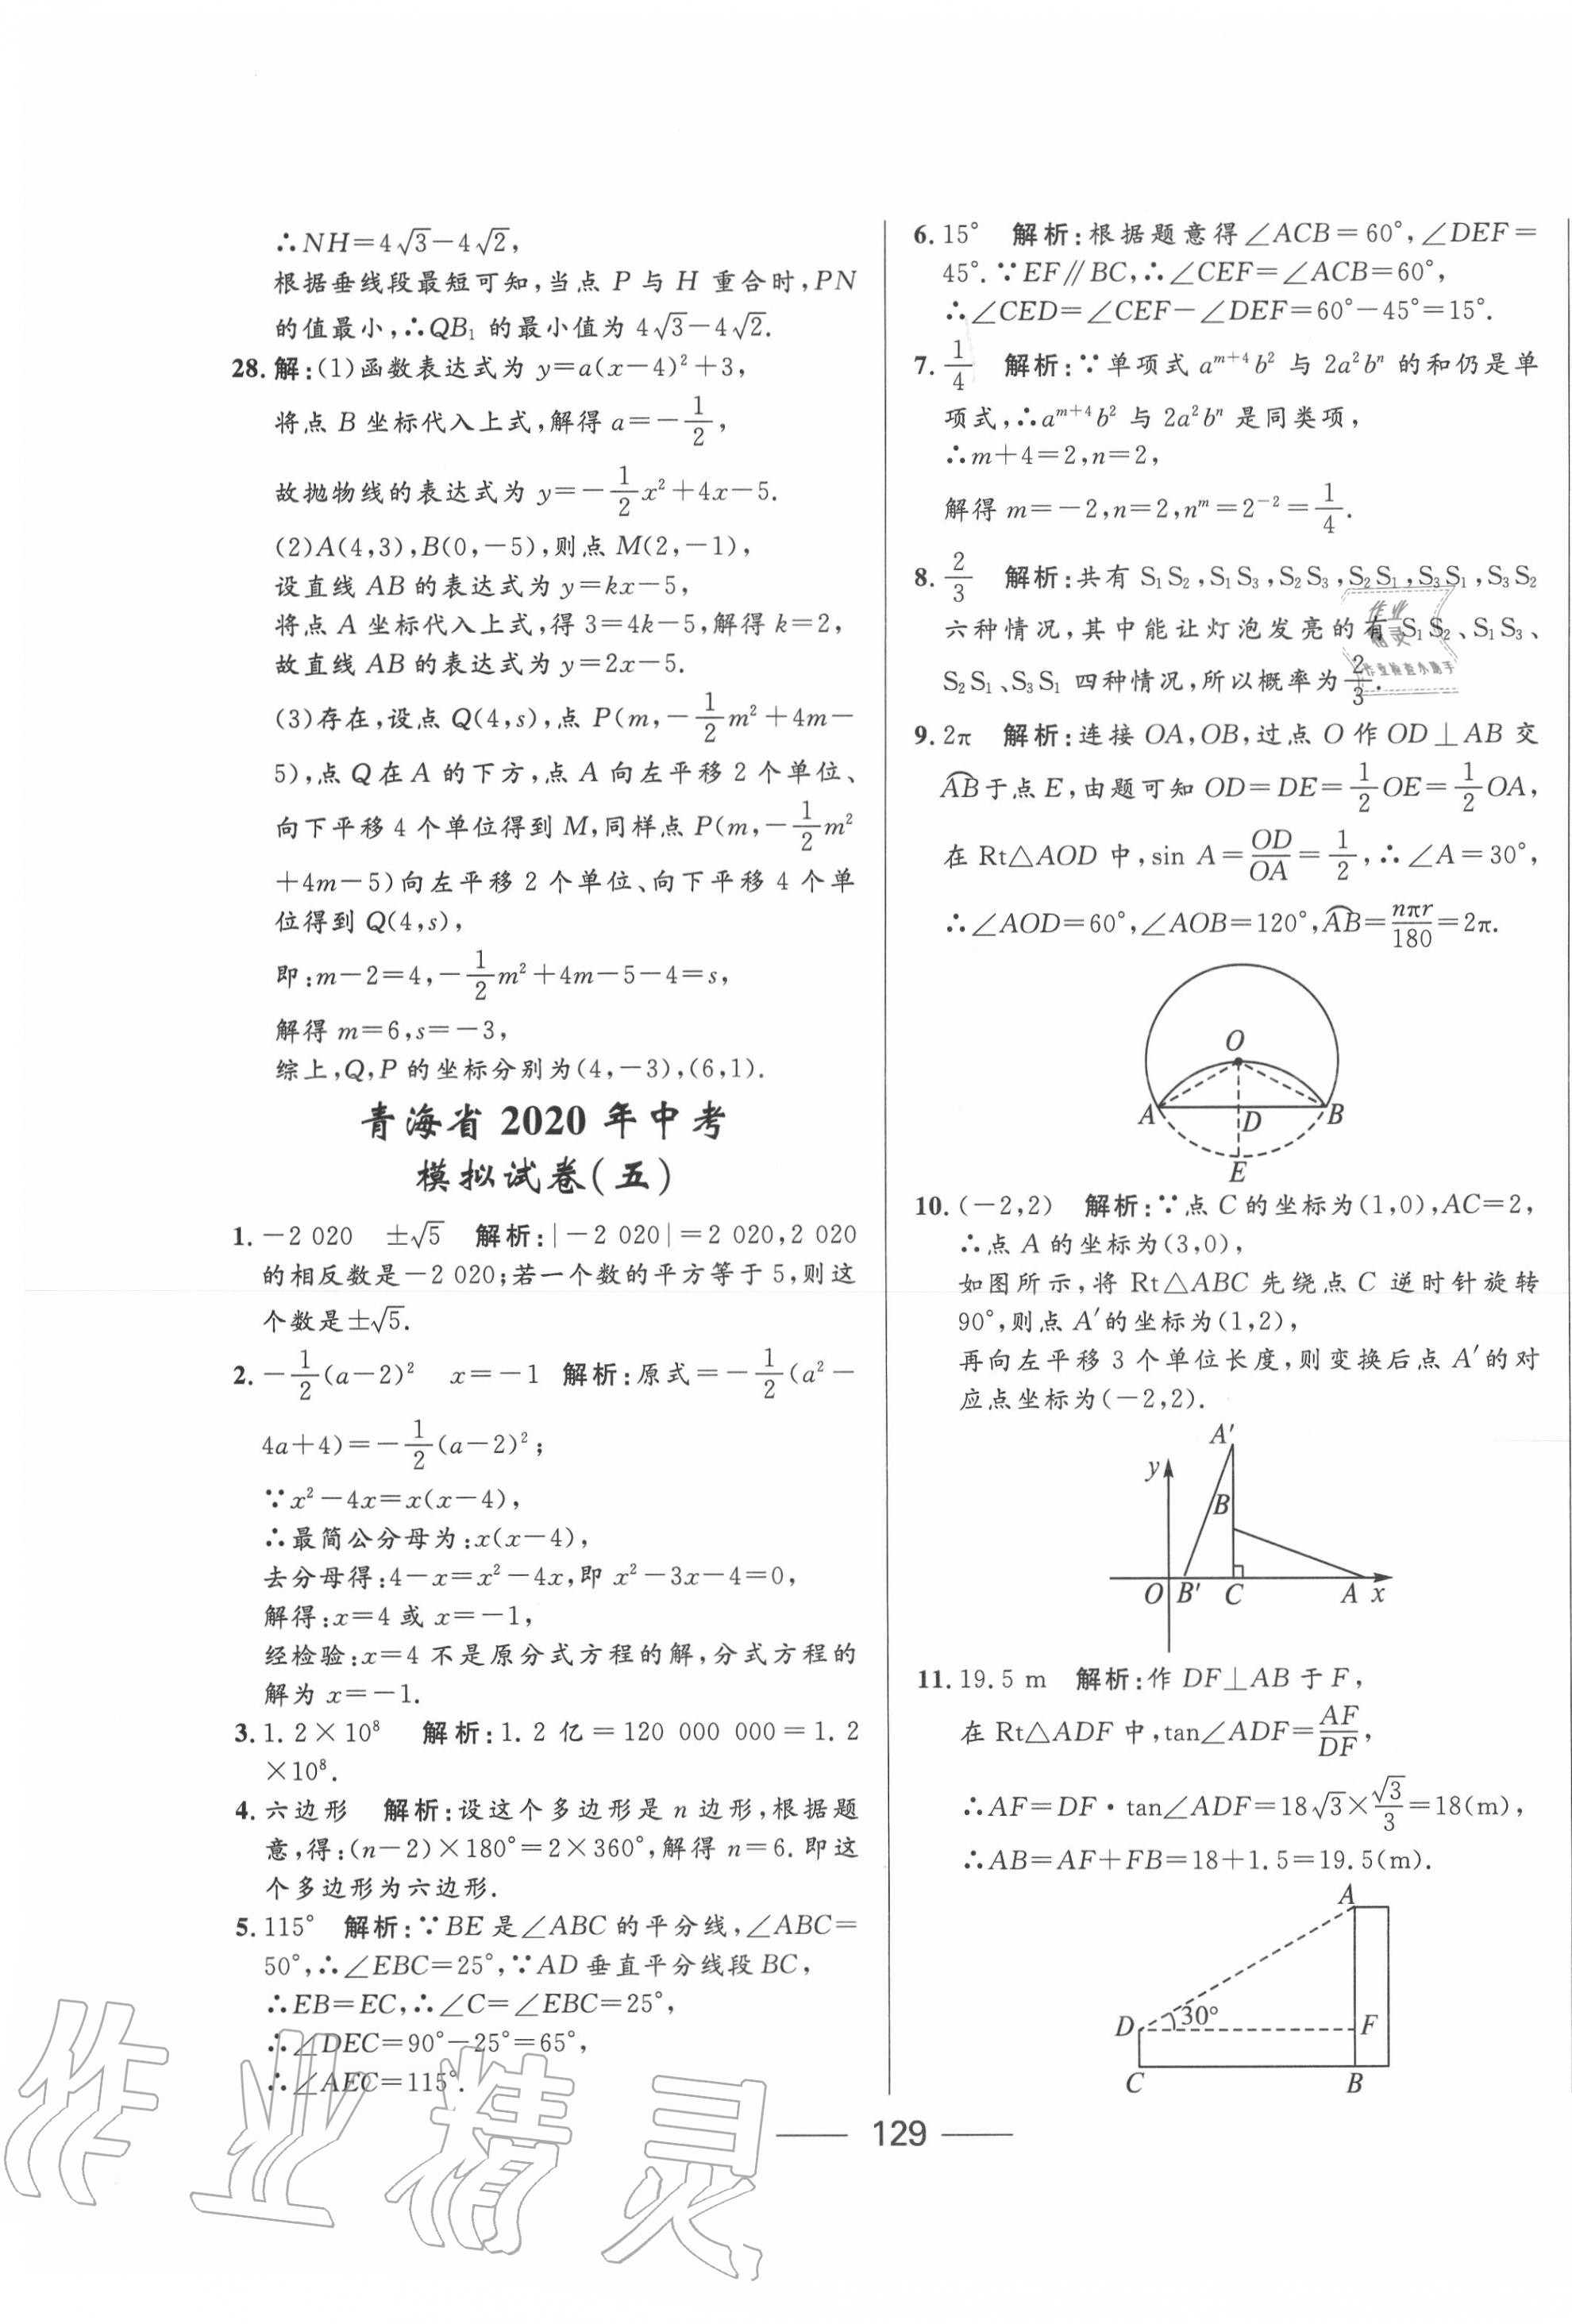 ∴NH=4√3-4√2,
根据垂线段最短可知,当点 P 与 H 重合时,PN
的值最小,∴QB₁ 的最小值为 4√3-4√2.
28. 解:(1)函数表达式为 y=a(x-4)²+3,
将点 B 坐标代入上式,解得 a=-1/2,
故抛物线的表达式为 y=-1/2x²+4x-5.
(2)A(4,3),B(0,-5),则点 M(2,-1),
设直线 AB 的表达式为 y=kx-5,
将点 A 坐标代入上式,得 3=4k-5,解得 k=2,
故直线 AB 的表达式为 y=2x-5.
(3)存在,设点 Q(4,s),点 P(m,-1/2m²+4m-
5),点 Q 在 A 的下方,点 A 向左平移 2 个单位、
向下平移 4 个单位得到 M,同样点 P(m,-1/2m²
+4m-5)向左平移 2 个单位、向下平移 4 个单
位得到 Q(4,s),
即:m-2=4,-1/2m²+4m-5-4=s,
解得 m=6,s=-3,
综上,Q,P 的坐标分别为(4,-3),(6,1).
青海省 2020 年中考
模拟试卷(五)
1. -2 020 ±√5 解析:|-2 020|=2 020,2 020
的相反数是-2 020;若一个数的平方等于 5,则这
个数是±√5.
2. -1/2(a-2)² x=-1 解析:原式=-1/2(a²-
4a+4)=-1/2(a-2)²;
∵x²-4x=x(x-4),
∴最简公分母为:x(x-4),
去分母得:4-x=x²-4x,即 x²-3x-4=0,
解得:x=4 或 x=-1,
经检验:x=4 不是原分式方程的解,分式方程的
解为 x=-1.
3. 1.2×10⁸ 解析:1.2 亿=120 000 000=1.2
×10⁸.
4. 六边形 解析:设这个多边形是 n 边形,根据题
意,得:(n-2)×180°=2×360°,解得 n=6.即这
个多边形为六边形.
5. 115° 解析:∵BE 是∠ABC 的平分线,∠ABC=
50°,∴∠EBC=25°,∵AD 垂直平分线段 BC,
∴EB=EC,∴∠C=∠EBC=25°,
∴∠DEC=90°-25°=65°,
∴∠AEC=115°.
6. 15° 解析:根据题意得∠ACB=60°,∠DEF=
45°.∵EF∥BC,∴∠CEF=∠ACB=60°,
∴∠CED=∠CEF-∠DEF=60°-45°=15°.
7. 1/4 解析:∵单项式 aᵐ⁺⁴b² 与 2a²bⁿ 的和仍是单
项式,∴aᵐ⁺⁴b² 与 2a²bⁿ 是同类项,
∴m+4=2,n=2,
解得 m=-2,n=2,nᵐ=2⁻²=1/4.
8. 2/3 解析:共有 S₁S₂,S₁S₃,S₂S₃,S₂S₁,S₃S₁,S₃S₂
六种情况,其中能让灯泡发亮的有 S₁S₂、S₁S₃、
S₂S₁、S₃S₁ 四种情况,所以概率为2/3.
作业
精灵
作业检查小助手
9. 2π 解析:连接 OA,OB,过点 O 作 OD⊥AB 交
⌒AB于点 E,由题可知 OD=DE=1/2OE=1/2OA,
在 Rt△AOD 中,sin A=OD/OA=1/2,∴∠A=30°,
∴∠AOD=60°,∠AOB=120°,⌒AB=nπr/180=2π.
O
A D B
E
10. (-2,2) 解析:∵点 C 的坐标为(1,0),AC=2,
∴点 A 的坐标为(3,0),
如图所示,将 Rt△ABC 先绕点 C 逆时针旋转
90°,则点 A′的坐标为(1,2),
再向左平移 3 个单位长度,则变换后点 A′的对
应点坐标为(-2,2).
A′
y
B
O B′ C A x
11. 19.5 m 解析:作 DF⊥AB 于 F,
在 Rt△ADF 中,tan∠ADF=AF/DF,
∴AF=DF·tan∠ADF=18√3×√3/3=18(m),
∴AB=AF+FB=18+1.5=19.5(m).
A
D 30° F
C B
129
作业精灵